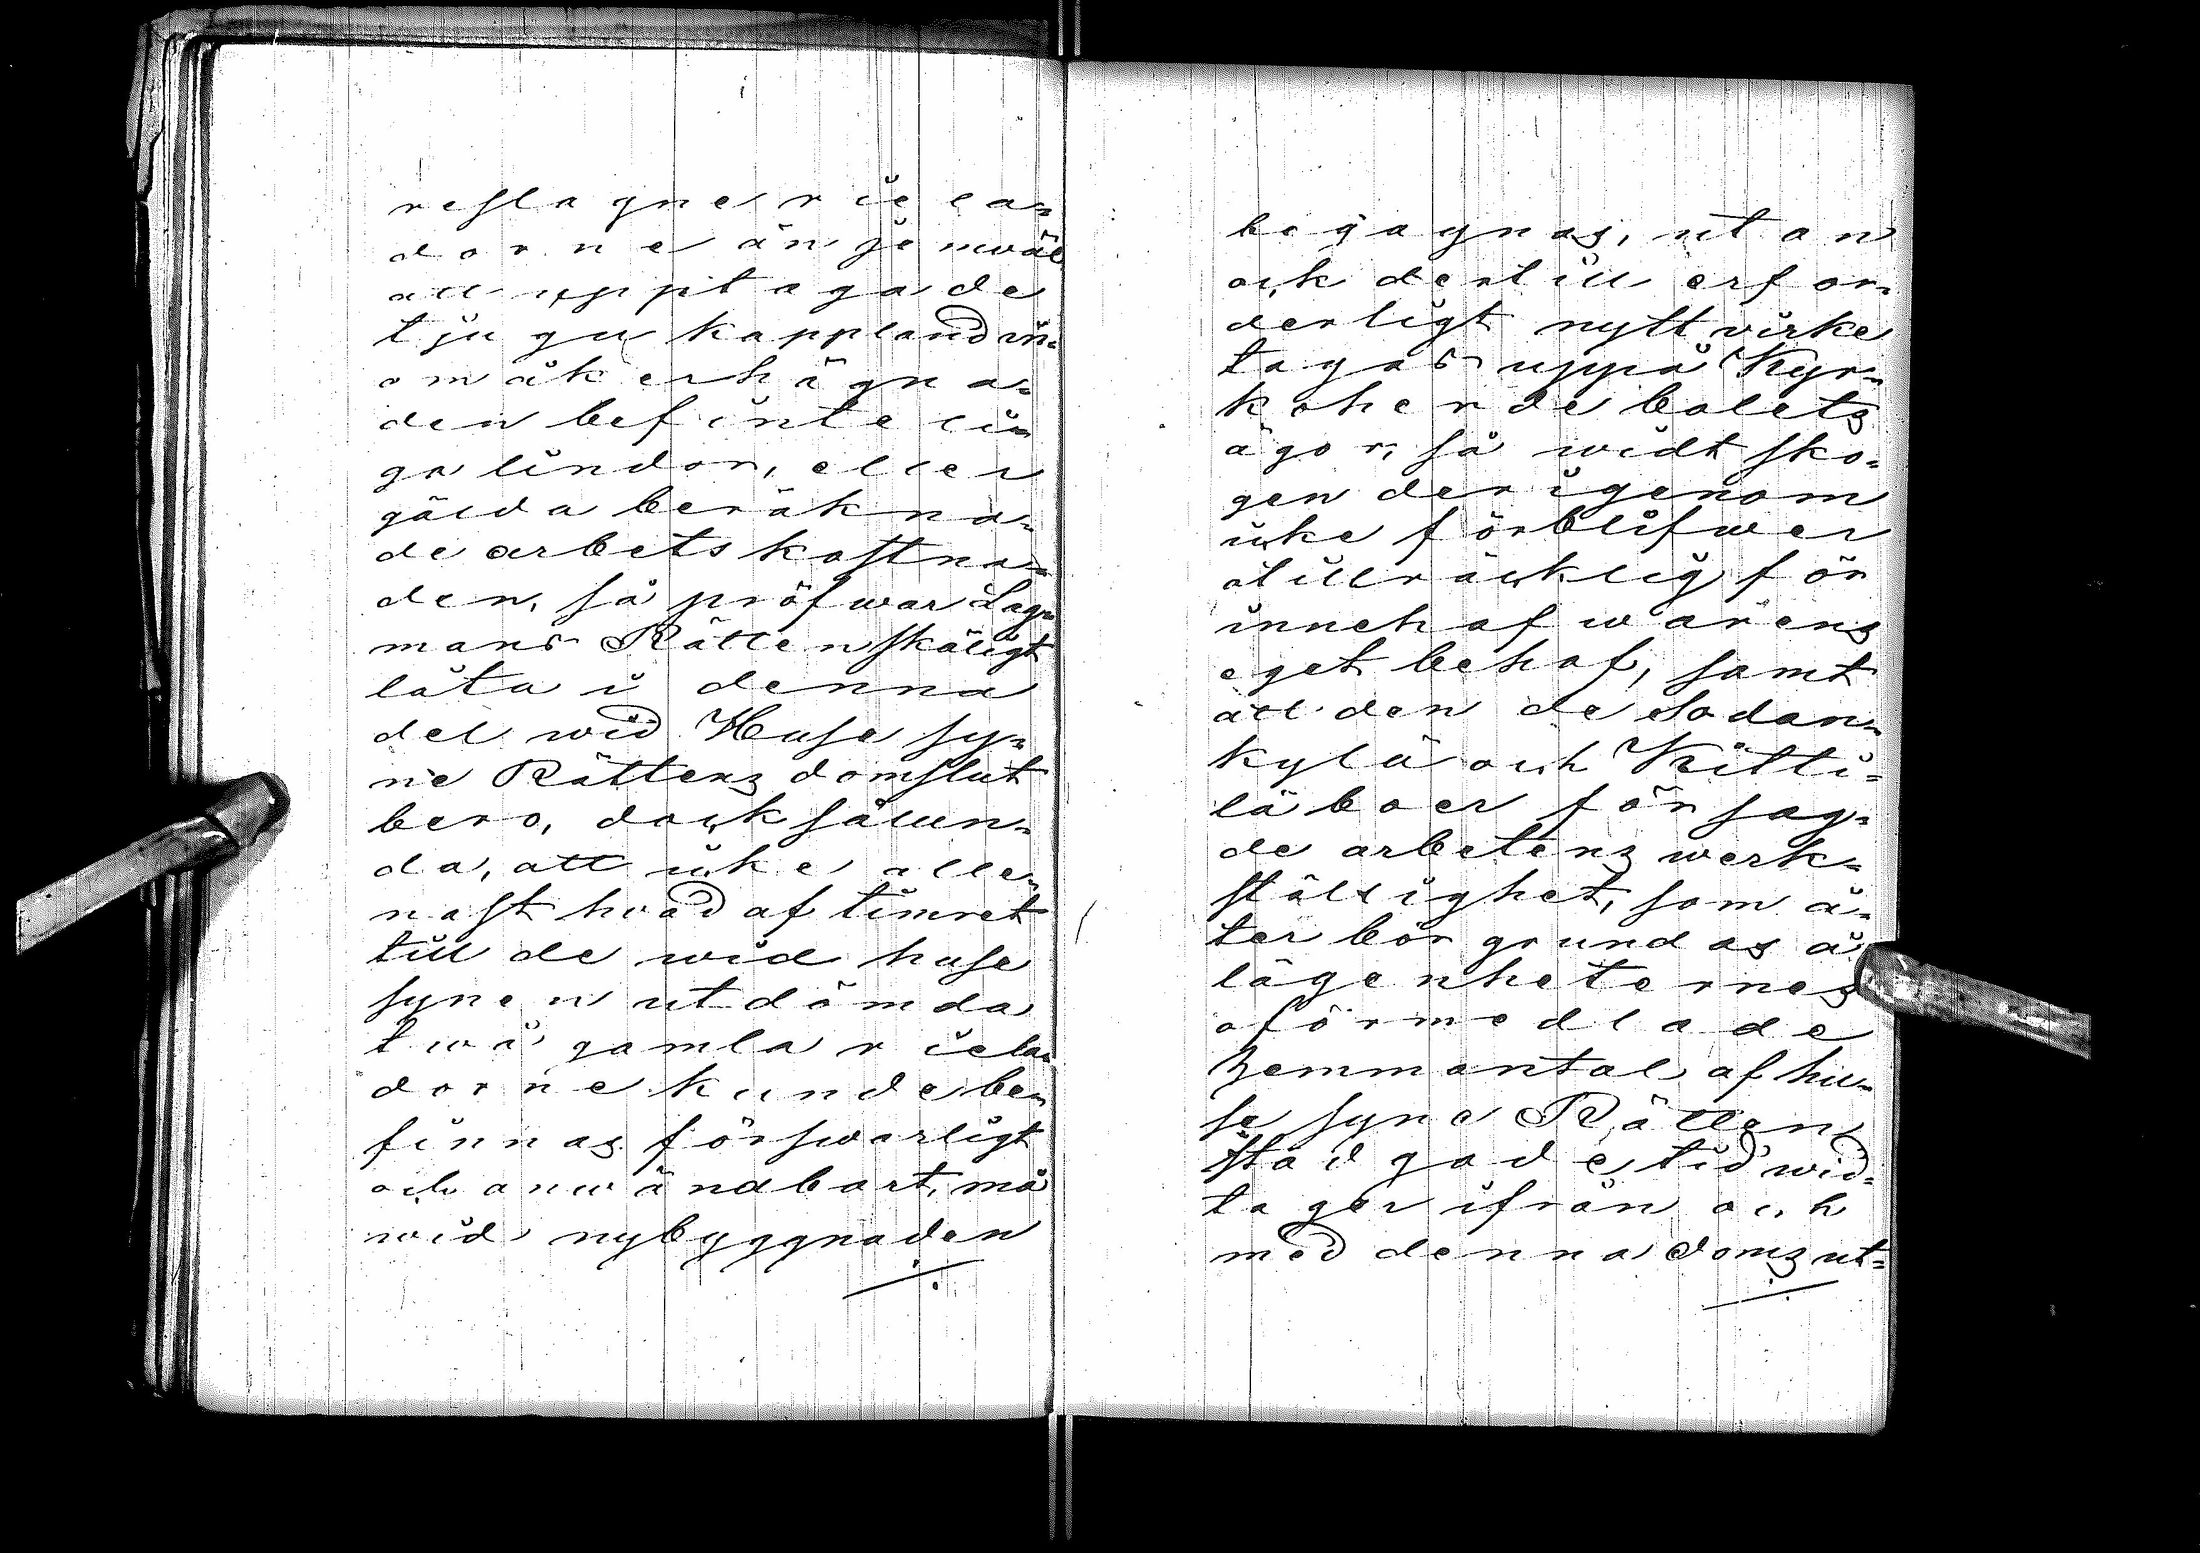 reslagne riela=
dorne än jemwäl
all upptagade
tjugu kappland in=
om åkerhägna=
den befinteli=
ga lindor, eller
gälda beräkna=
de arbetskostna=
den, så pröfwar Lag=
mans Rätten skäligt
låta i denna
del wid Huse sy=
ne Rättens domslut
bero, dock sålun=
da, att icke alle=
nast hvad af timret
till de wid huse
synen utdömda
twå gamla riela=
dorne kunde be=
finnas förswarligt
och anwändbart, må
wid nybyggnaden
./.
begagnas, utan
ock dertill erfor=
derligt nytt virke
tagas uppå Kyr=
koherdebolets
ägor, så widt sko=
gen derigenom
icke förblifwer
otillräcklig för
innehafwarens
eget behof, samt
att den de Sodan=
kylä och Kitti=
lä boer för sag=
de arbetens werk=
ställighet, som å=
ter bör grundas å
lägenheternes
oförmedlade
hemmantal af hu=
se syne Rätten
stadgade tid wid=
tager ifrån och
med denna doms ut=
./.